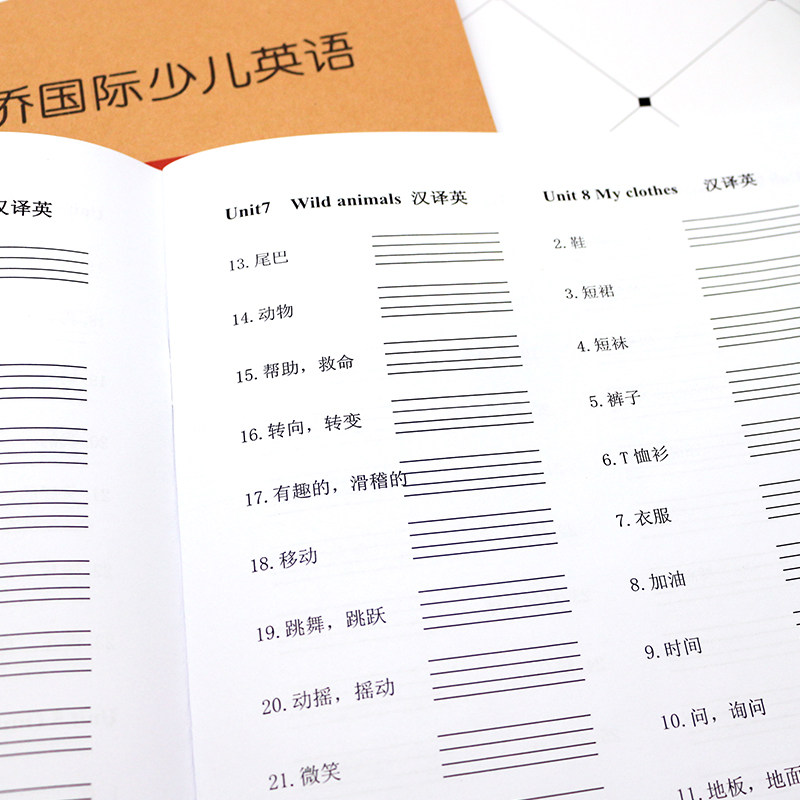 乔国际少儿英语
汉译英
Unit7 Wild animals 汉译英
13. 尾巴
14. 动物
15. 帮助，救命
16. 转向，转变
17. 有趣的，滑稽的
18. 移动
19. 跳舞，跳跃
20. 动摇，摇动
21. 微笑
Unit 8 My clothes 汉译英
2. 鞋
3. 短裙
4. 短袜
5. 裤子
6. T 恤衫
7. 衣服
8. 加油
9. 时间
10. 问，询问
11. 地板，地面